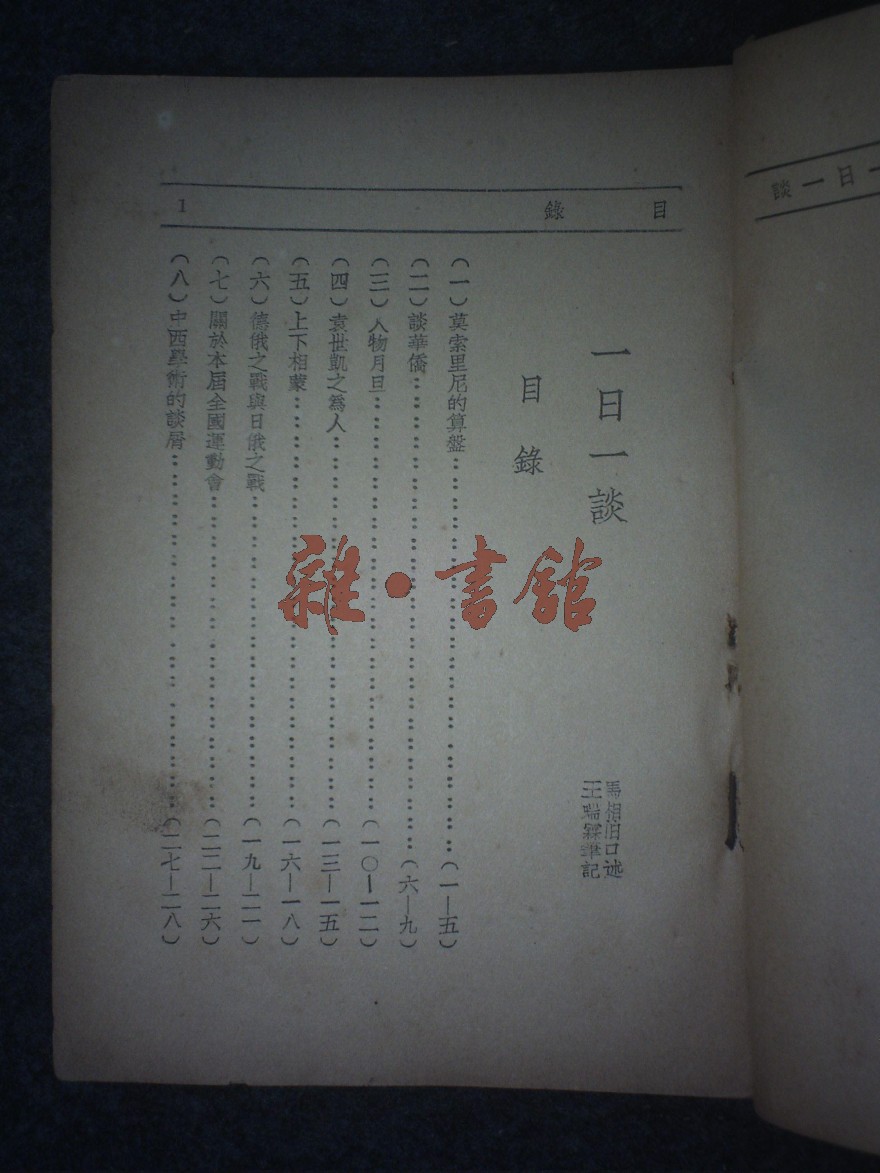 目錄 1
一日一談
目錄
馬相伯口述
王瑞霖筆記
(一)莫索里尼的算盤……………………(一—五)
(二)談華僑……………………(六—九)
(三)人物月旦……………………(一〇—一二)
(四)袁世凱之為人……………………(一三—一五)
(五)上下相蒙……………………(一六—一八)
(六)德俄之戰與日俄之戰……………………(一九—二一)
(七)關於本屆全國運動會……………………(二二—二六)
(八)中西學術的談屑……………………(二七—二八)
一日一談
雜·書館